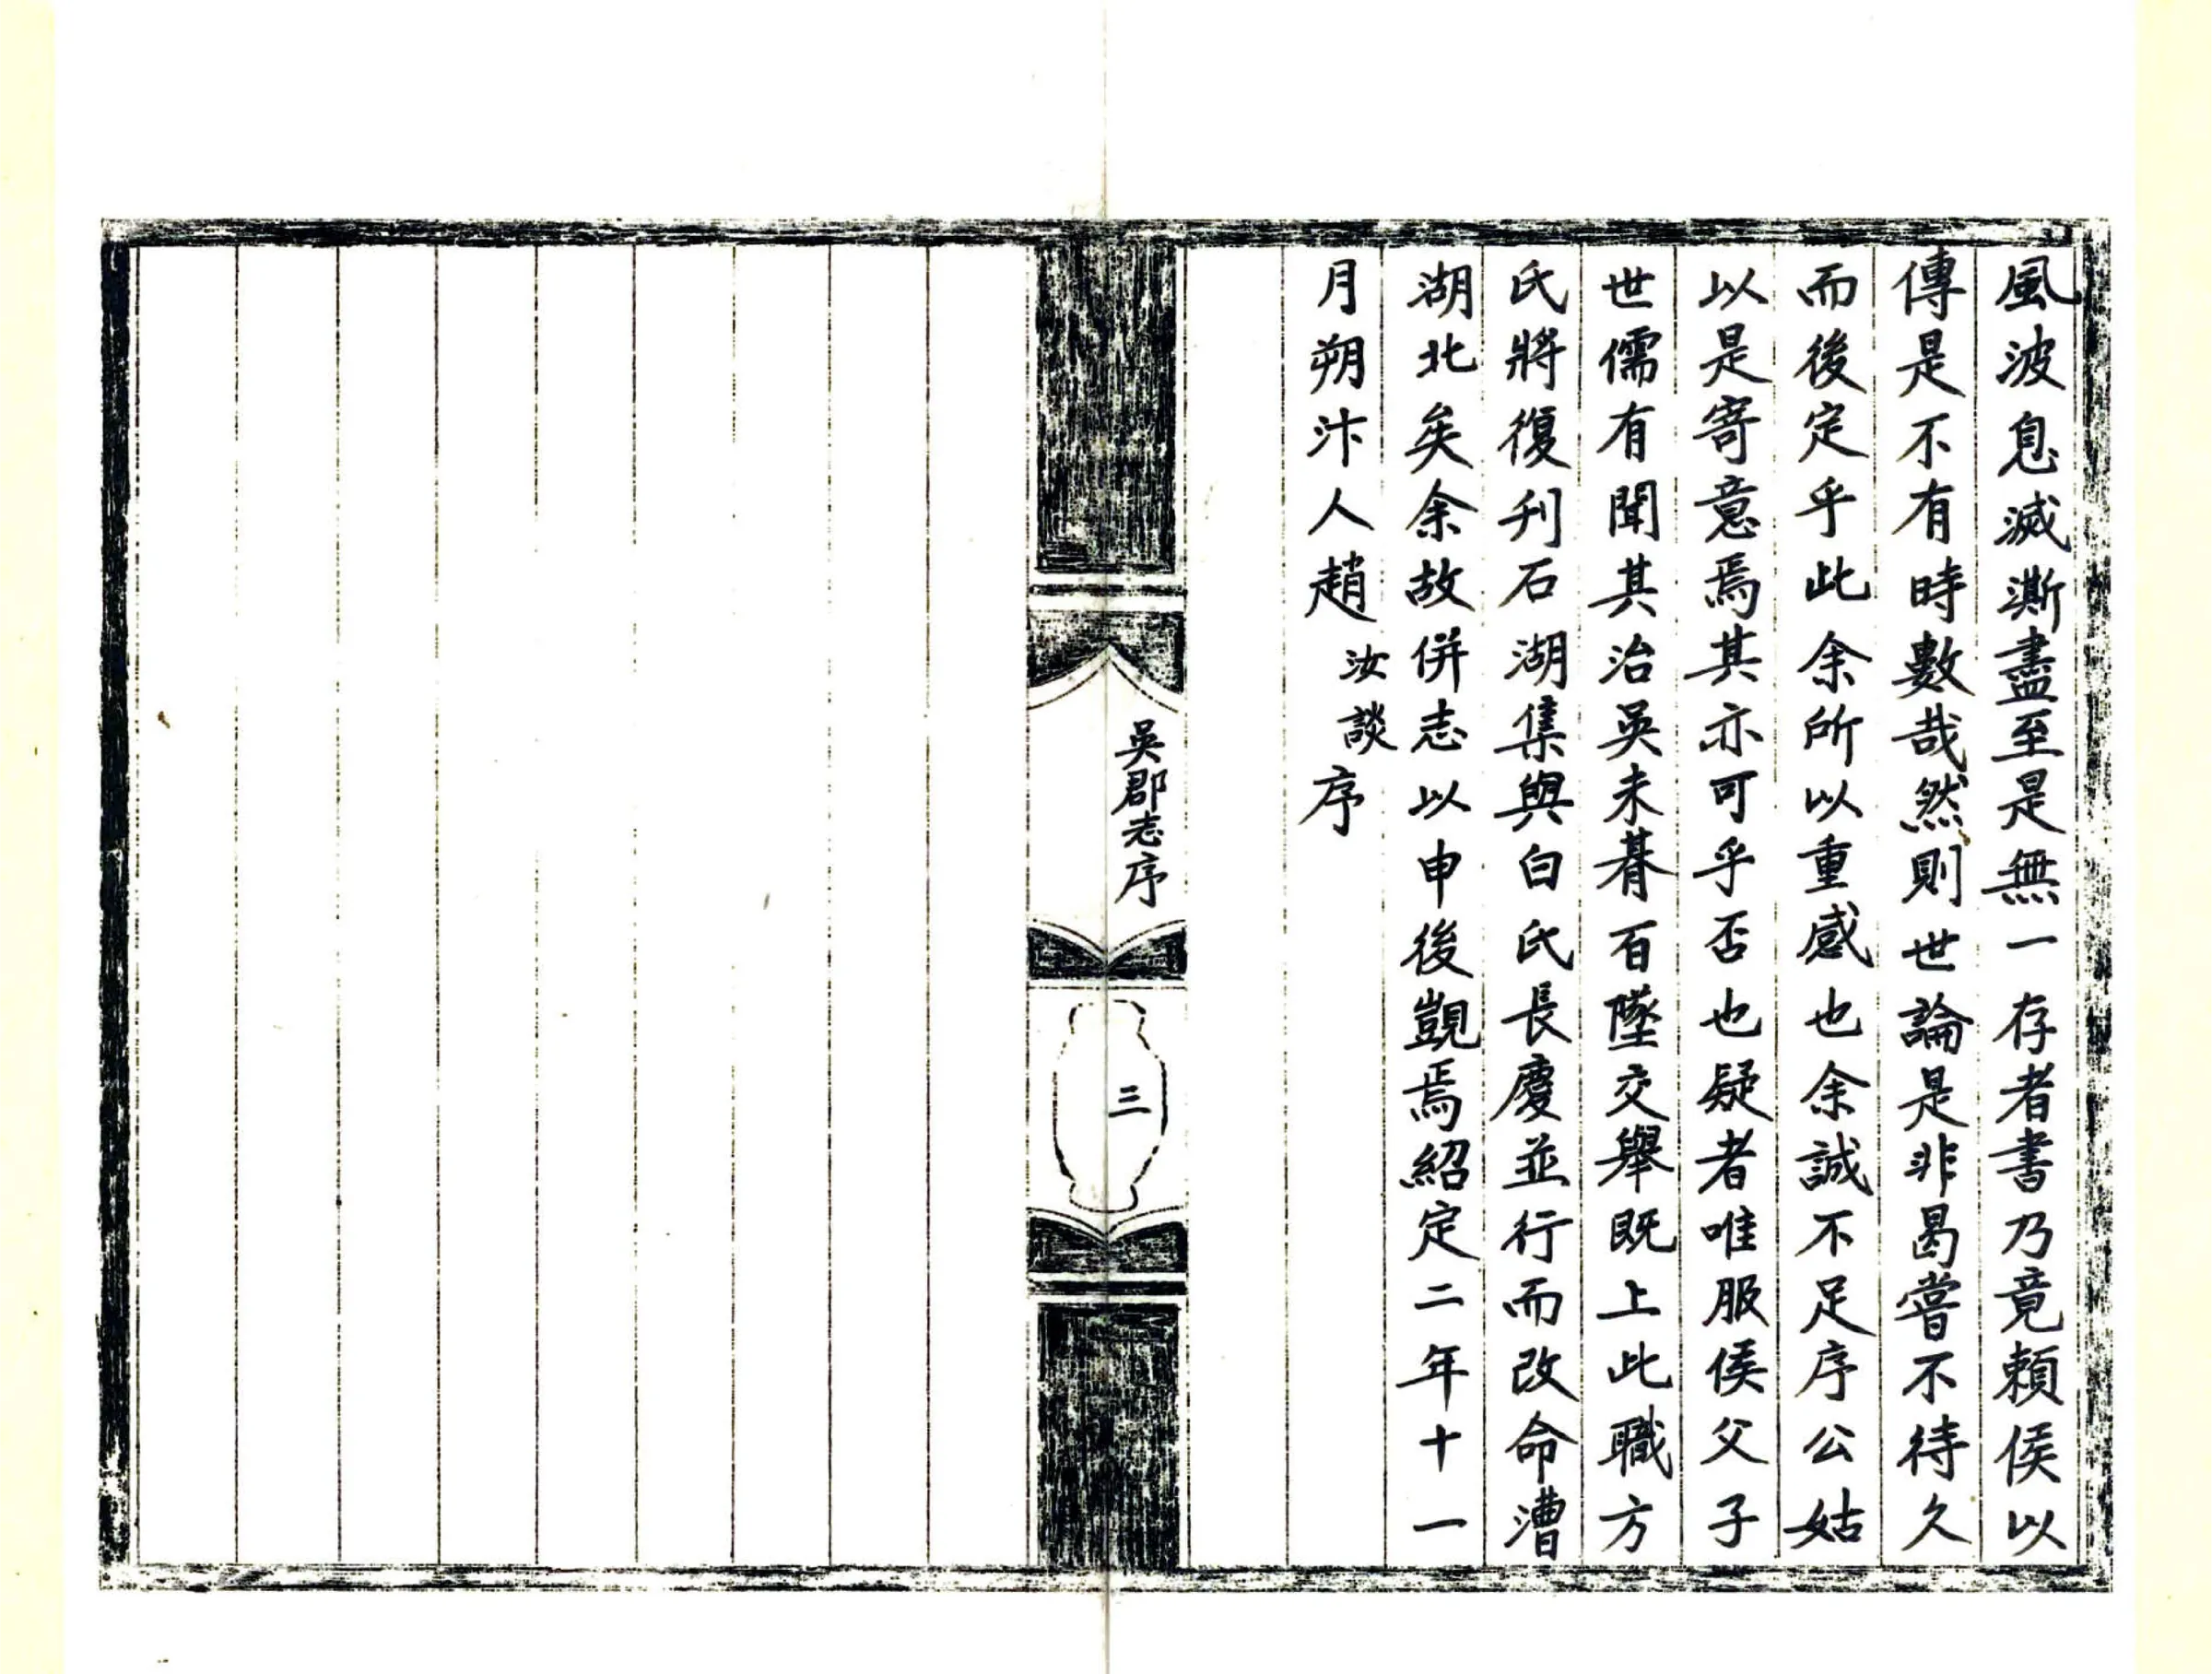 風波息滅澌盡至是無一存者書乃竟賴侯以
傳是不有時數哉然則世論是非曷嘗不待久
而後定乎此余所以重感也余誠不足序公姑
以是寄意焉其亦可乎否也疑者唯服侯父子
世儒有聞其治吳未朞百墜交舉既上此職方
氏將復刋石湖集與白氏長慶並行而改命漕
湖北矣余故併志以申後覬焉紹定二年十一
月朔汴人趙汝談序
吳郡志序
三